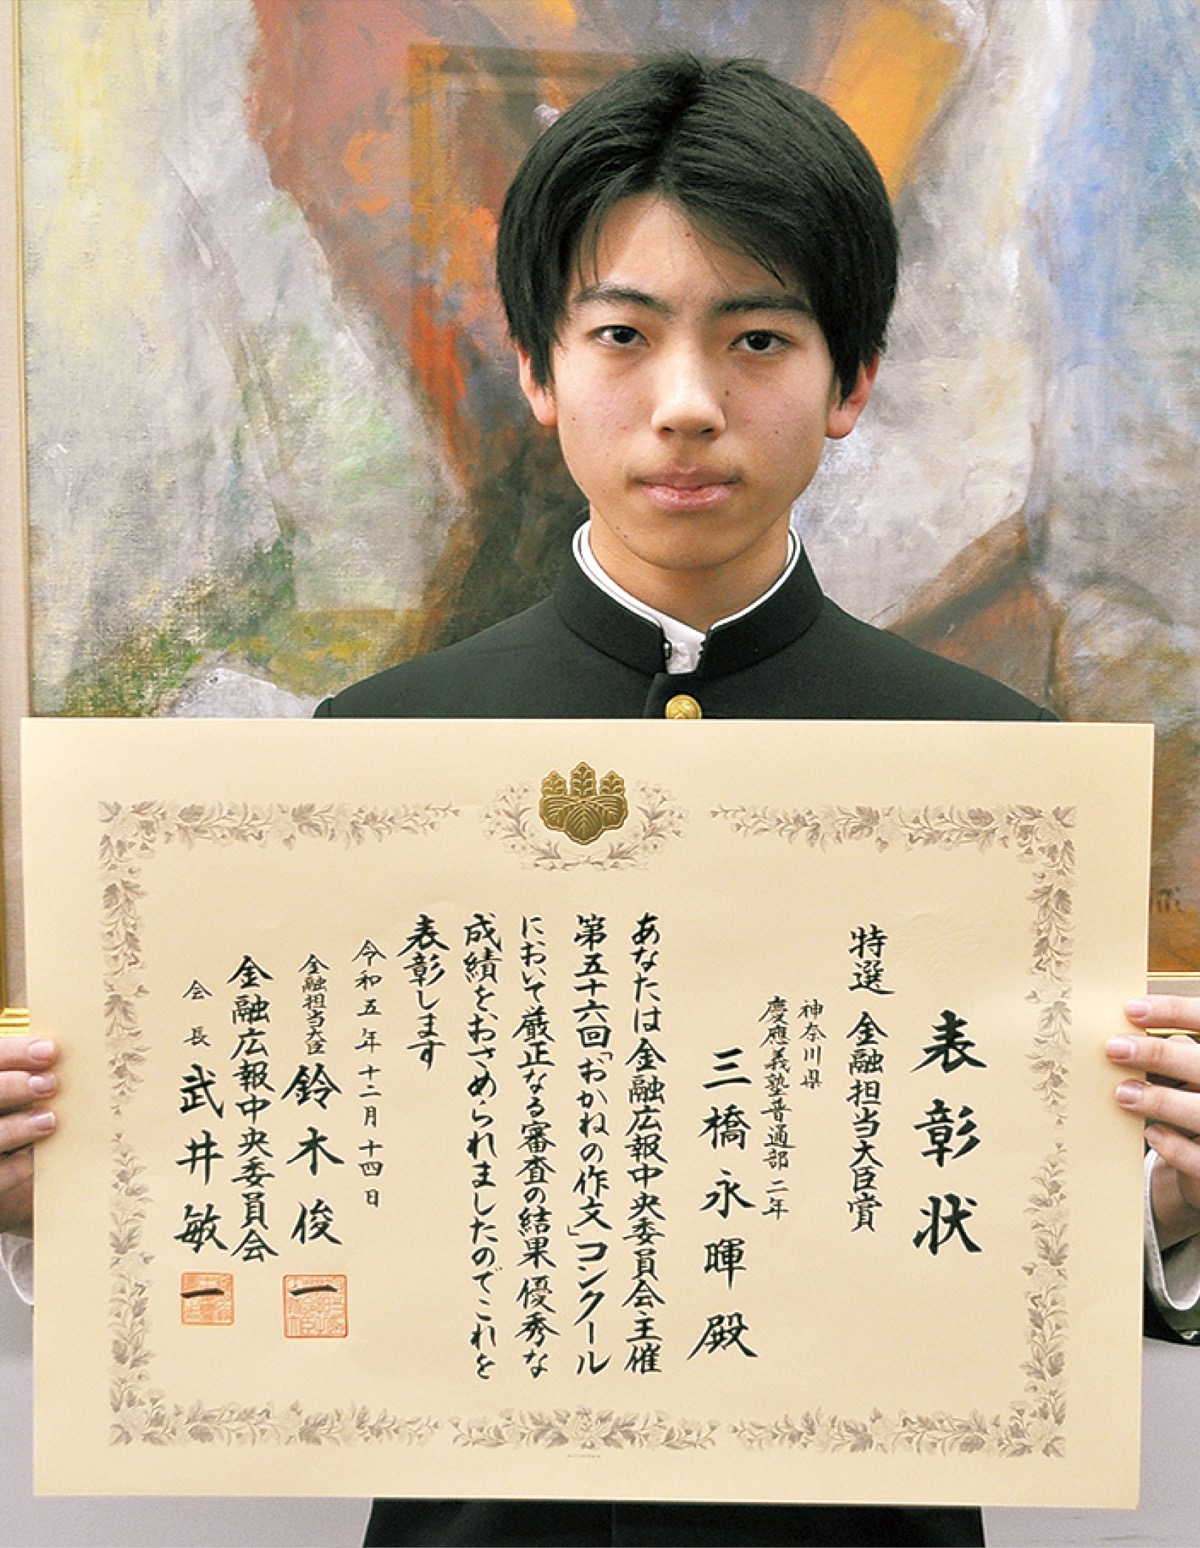 表彰状
特選 金融担当大臣賞
神奈川県
慶應義塾普通部 二年
三橋永暉殿
あなたは金融広報中央委員会主催
第五十六回「おかねの作文」コンクール
において厳正なる審査の結果優秀な
成績をおさめられましたのでこれを
表彰します
令和五年十二月十四日
金融担当大臣 鈴木俊一
金融広報中央委員会
会長 武井敏一